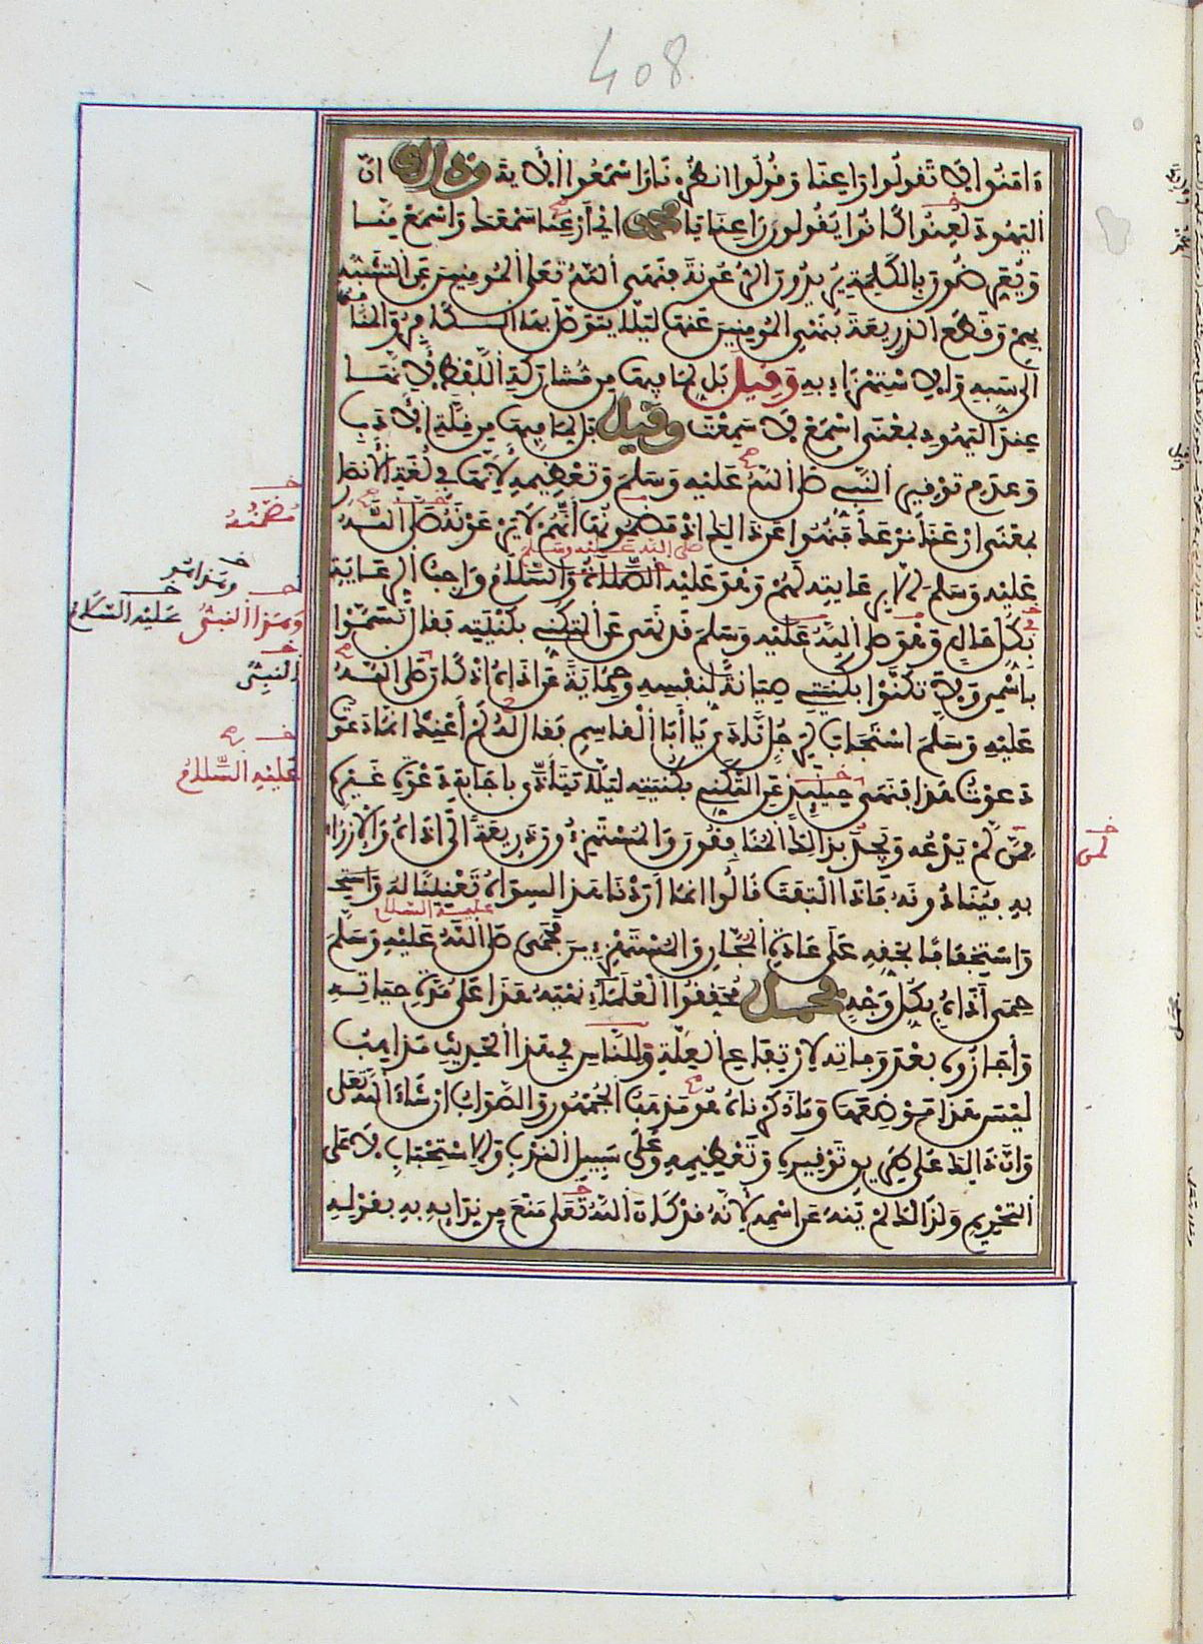 408
ءامنوا لا تقولوا راعنا وقولوا انظرنا واسمعوا الآية وذلك ان
اليهود لعنوا كانوا يقولون راعنا يا محمد اي أرعنا سمعك واسمع منا
ويعرضون بالكلمة يريدون الرعونة فنهى الله تعلى المومنين عن التشبه
بهم وقطع الذريعة بنهي المومنين عنها ليلا يتوصل بها الكافر والمنافق
الى سبه والاستهزاء به وقيل بل لما فيها من مشاركة اللفظ لأنها
عند اليهود بمعنى اسمع لا سمعت وقيل بل لما فيها من قلة الأدب
وعدم توقير النبي صلى الله عليه وسلم وتعظيمه لأنها في لغة الأنصار
بمعنى ارعنا نرعك فنهوا عن ذالك اذ مضمونها أنهم لا يرعونه صلى الله
عليه وسلم الا برعايته لهم وهو عليه الصلاة والسلام واجب الرعاية
بكل حال وهو صلى الله عليه وسلم قد نهى عن التكني بكنيته فقال تسموا
باسمي ولا تكنوا بكنيتي صيانة لنفسه وحماية عن أذاه اذ كان صلى الله
عليه وسلم استجاب لرجل نادى يا أبا القاسم فقال له لم أعنك انما دعوت
دعوت هذا فنهى حينئذ عن التكني بكنيته ليلا يتأذى باجابة دعوة غيره
ممن لم يدعه ويجد بذالك المنافقون والمستهزءون ذريعة الى اذاه والازراء
به فينادونه فاذا التفت قالوا انما اردنا هذا لسواه تعنيتا له واستخ
واستخفافا بحقه على عادة المجان والمستهزءين فحمى صلى الله عليه وسلم
حمى أذاه بكل وجه فحمل محققوا العلماء نهيه هذا على مدة حياته
وأجازوه بعد وفاته لارتفاع العلة وللناس في هذا الحديث مذاهب
ليس هذا موضعها وما ذكرناه هو مذهب الجمهور والصواب ان شاء الله تعلى
وان ذالك على طريق توقيره وتعظيمه وعلى سبيل الندب والاستحباب لا على
التحريم ولذالك لم ينه عن اسمه لأنه قد كان الله تعلى منع من ندايه به بقوله
مضمنه
وهذا هو
وهذا النبي عليه السلام
النبي
عليه السلام
لمن